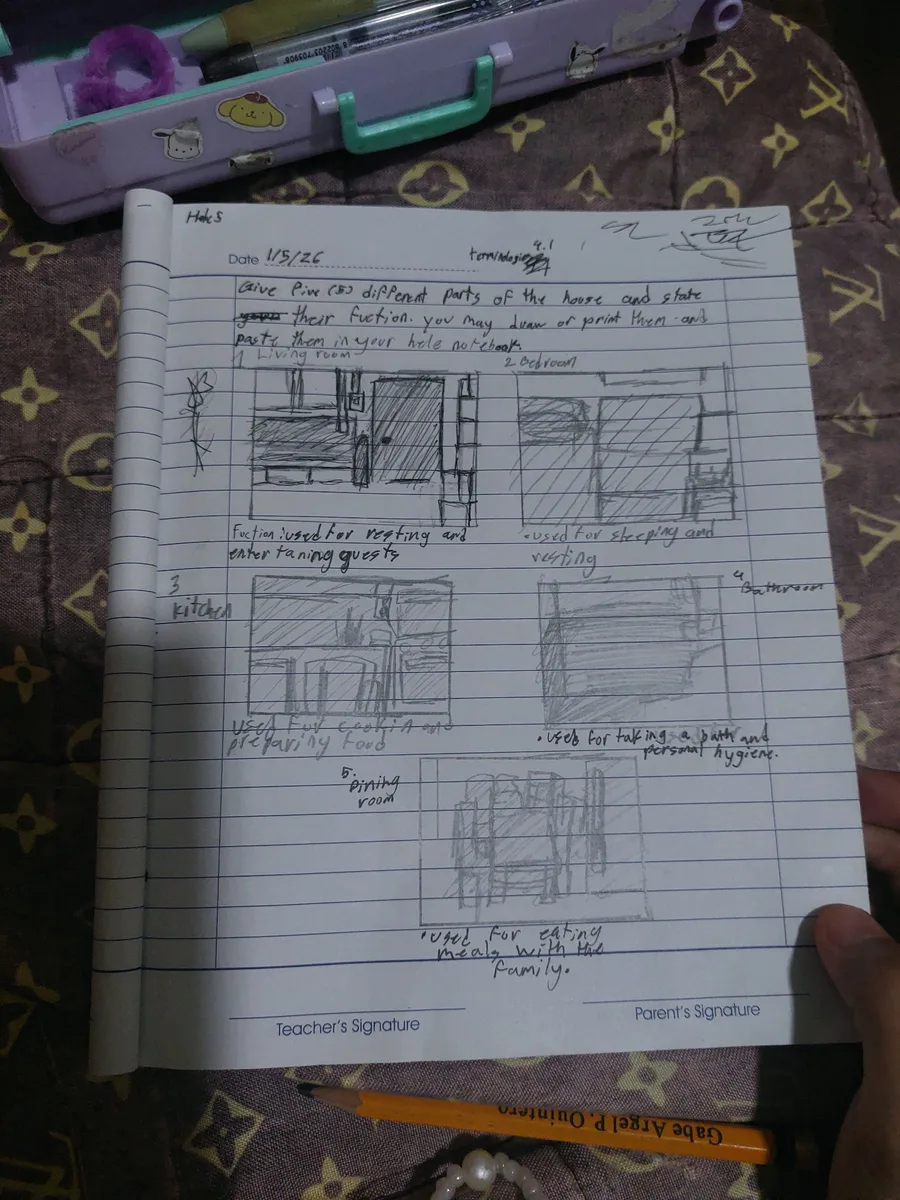 Hele 5
Date 1/5/26
4.1
Give Five (5) different parts of the house and state
their fuction. you may draw or print them and
paste them in your hele notebook.
1 Living room
2 Bedroom
Fuction: used for resting and
entertaning guests
• used for sleeping and
resting
3
Kitchen
4
Bathroom
used for cooking and
preparing food
• used for taking a bath and
personal hygiene.
5.
Dining
room
• used for eating
meals with the
family.
Teacher's Signature
Parent's Signature
Gabe Argel P. Quintero